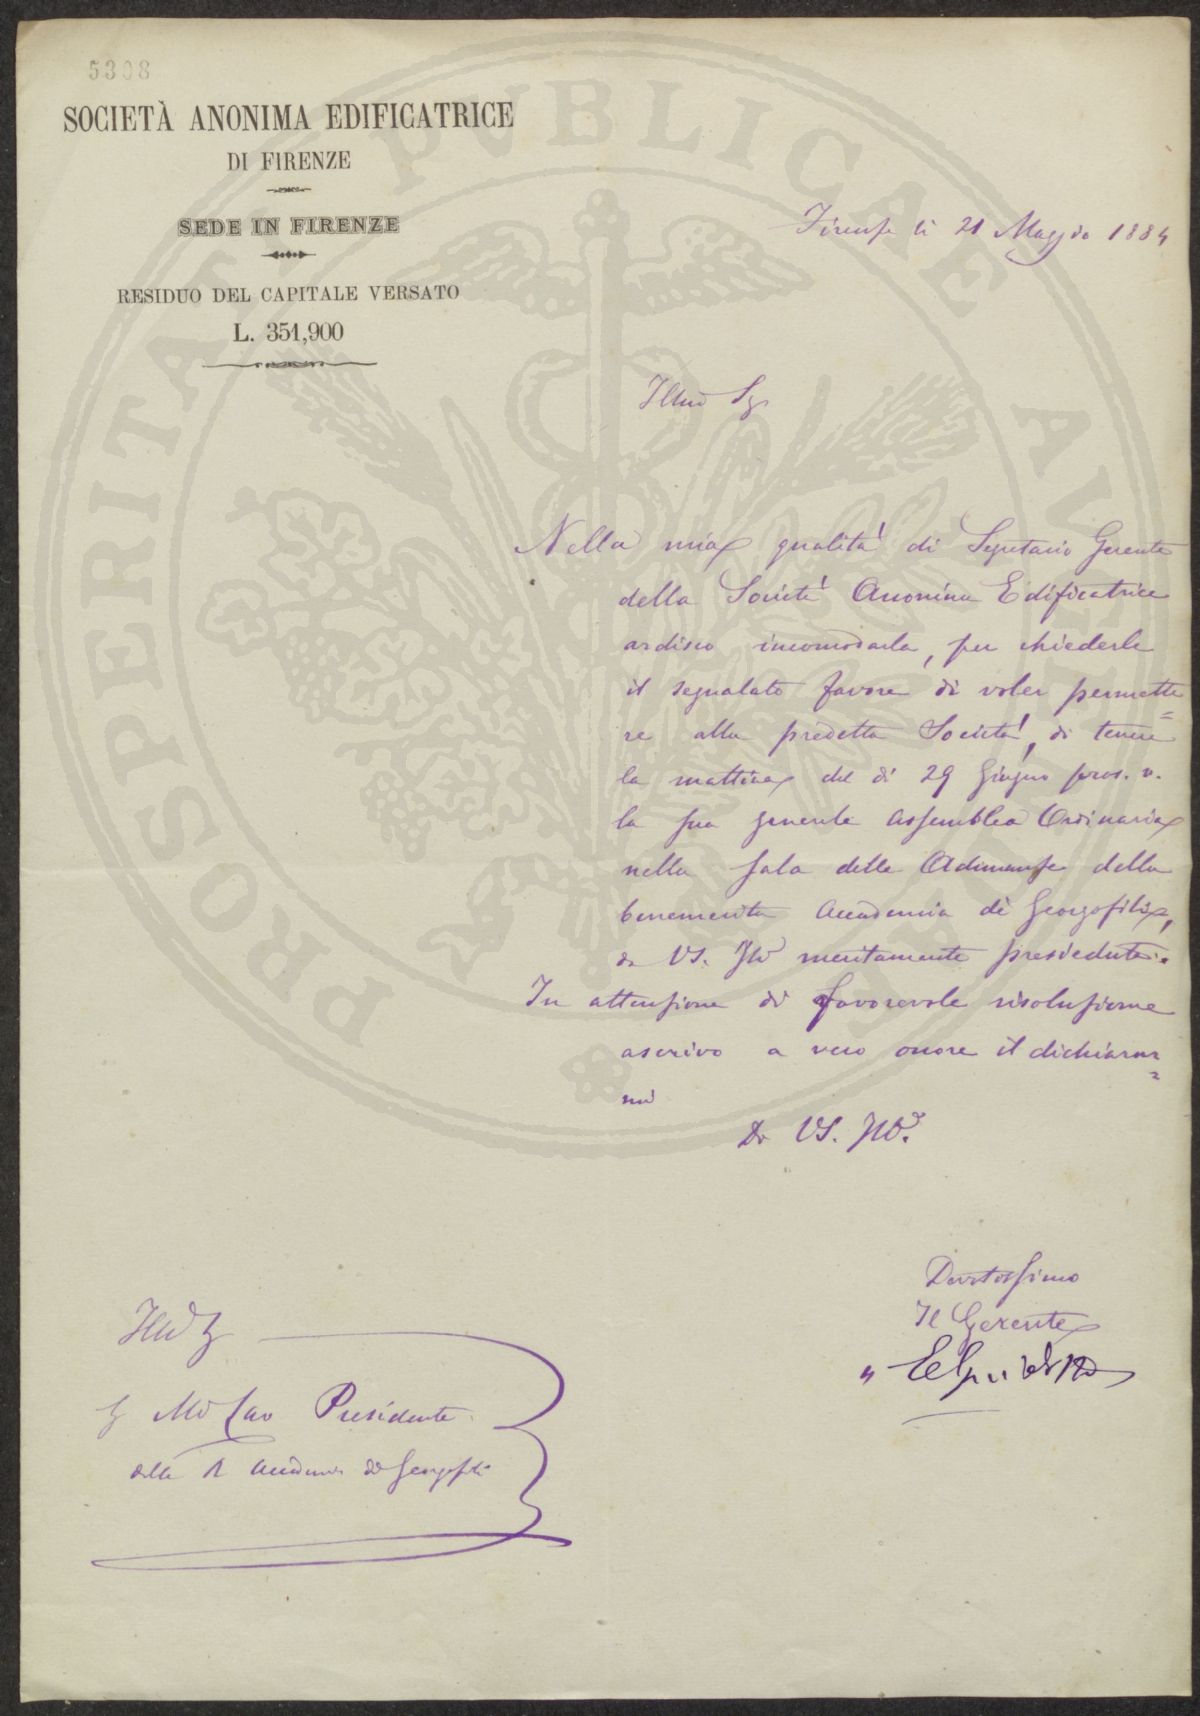 5308
SOCIETÀ ANONIMA EDIFICATRICE
DI FIRENZE
SEDE IN FIRENZE
RESIDUO DEL CAPITALE VERSATO
L. 351,900
PROSPERITATI PVBLICAE AVGENDAE
Firenze li 21 Maggio 1884
Illmo Sigr
Nella mia qualità di Segretario Gerente
della Società Anonima Edificatrice
ardisco incomodarla, per chiederle
il segnalato favore di voler permette
re alla predetta Società, di tenere
la mattina del dì 29 Giugno pros. v.
la sua generale assemblea Ordinaria
nella sala delle Adunanze della
benemerita Accademia dei Georgofili,
da VS. Illma meritamente presieduta.
In attenzione di favorevole risoluzione
ascrivo a vero onore il dichiarar
mi
Di VS. Illma
Devotissimo
Il Gerente
Illmo Sig
Presidente
della R Accademia dei Georgofili